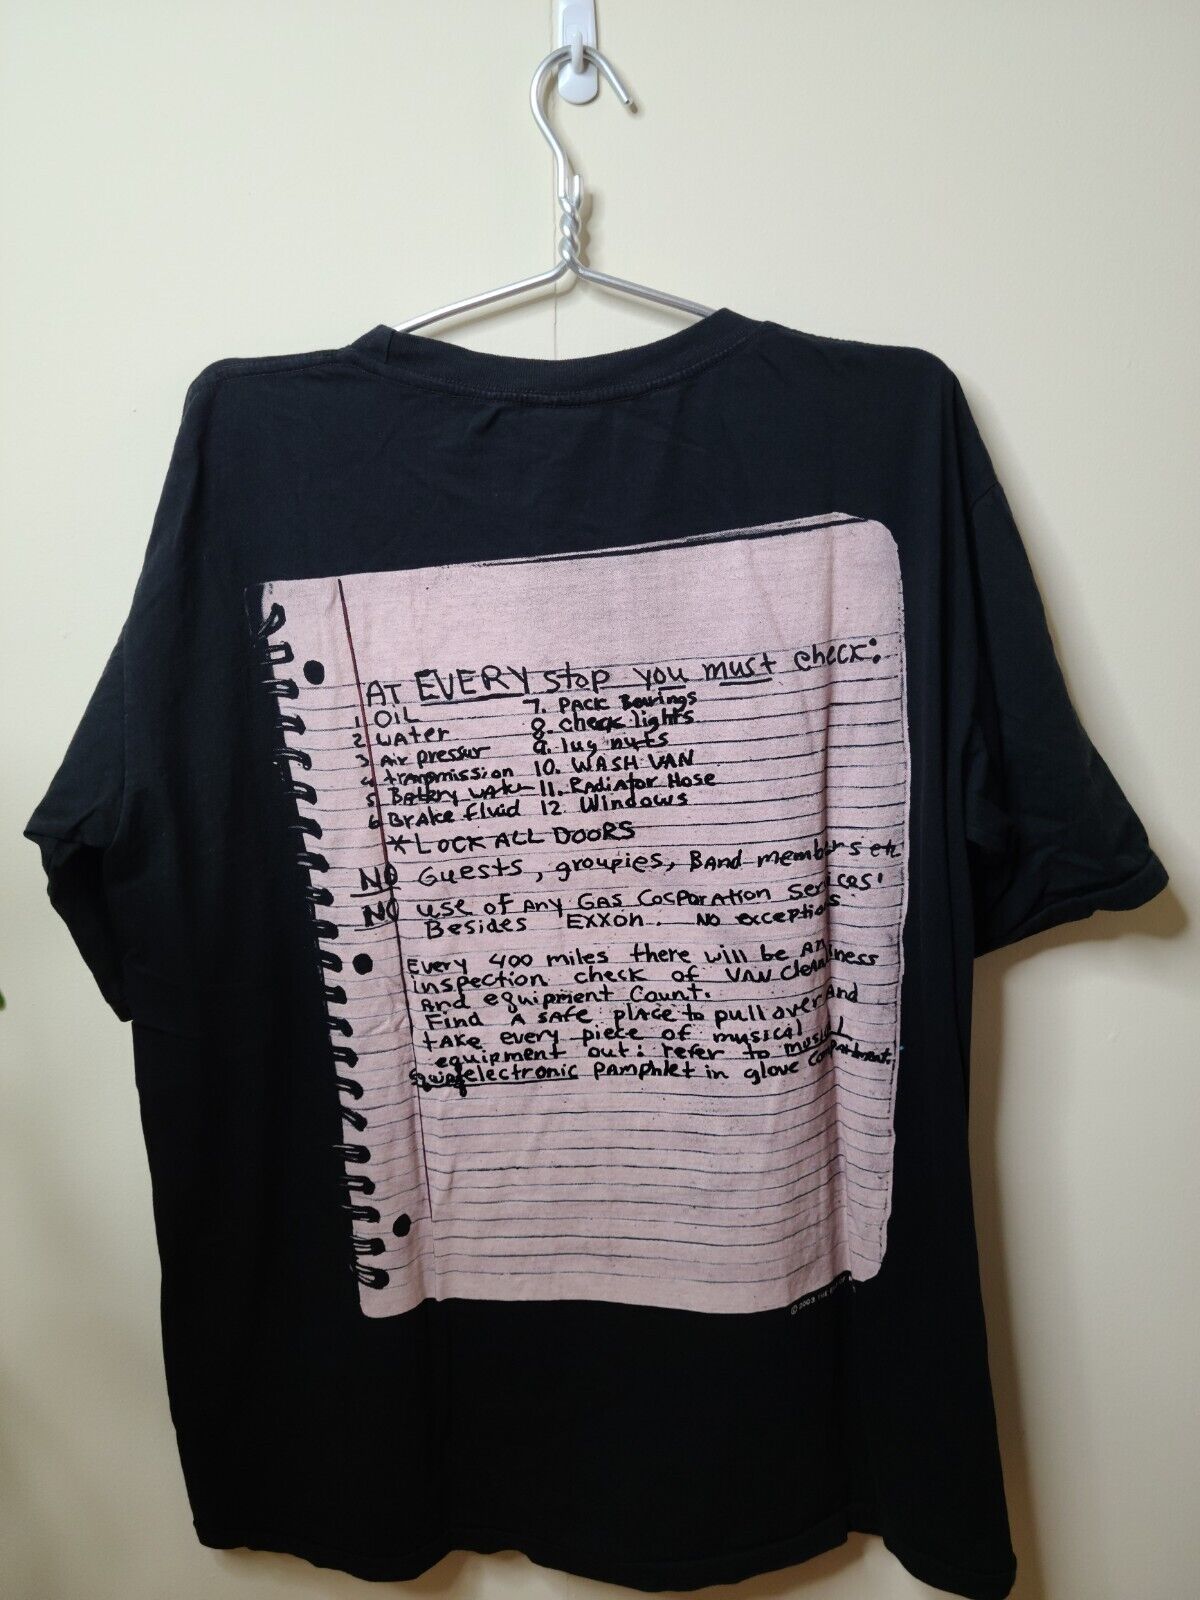 AT EVERY stop you must check:
1 OIL
2 WAter
3 Air pressur
4 transmission
5 Battery water
6 Brake fluid
7. PACK Bearings
8. check lights
9. lug nuts
10. WASH VAN
11. RADiAtor Hose
12. Windows
* LOCK ALL DOORS
NO Guests, groupies, BAnd members etc
NO use of Any GAS CorporAtion services'
Besides EXXon. No exceptions
Every 400 miles there will be An
inspection check of VAN cleanliness
And equipment Count.
Find A sAfe plAce to pull over And
tAke every piece of musical
equipment out: refer to musical
electronic pAmphlet in glove compartment.
© 2003 THE END OF